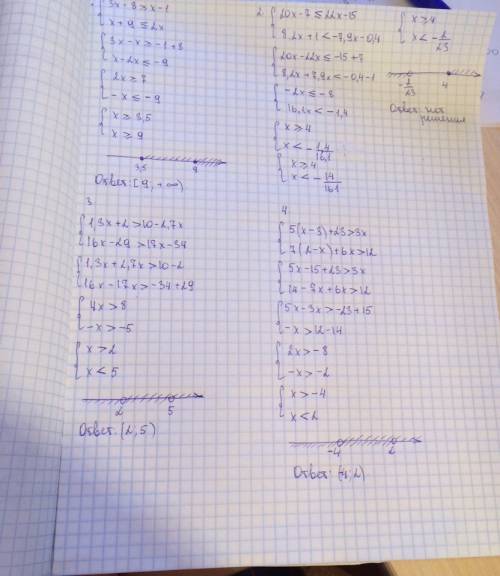 3x-8≥x-1
x+9≤2x
3x-x≥-1+8
x-2x≤-9
2x≥7
-x≤-9
x≥3,5
x≥9
3,5 9
Ответ: [9; +∞)
2.
20x-7≤22x-15
8,2x+1<-7,9x-0,4
20x-22x≤-15+7
8,2x+7,9x<-0,4-1
-2x≤-8
16,1x<-1,4
x≥4
x<-1,4/16,1
x≥4
x<-14/161
x≥4
x<-2/23
-2/23 4
Ответ: нет
решения
3
1,3x+2>10-2,7x
16x-29>17x-34
1,3x+2,7x>10-2
16x-17x>-34+29
4x>8
-x>-5
x>2
x<5
2 5
Ответ: (2; 5)
4
5(x-3)+23>3x
7(2-x)+6x>12
5x-15+23>3x
14-7x+6x>12
5x-3x>-23+15
-x>12-14
2x>-8
-x>-2
x>-4
x<2
-4 2
Ответ: (-4; 2)